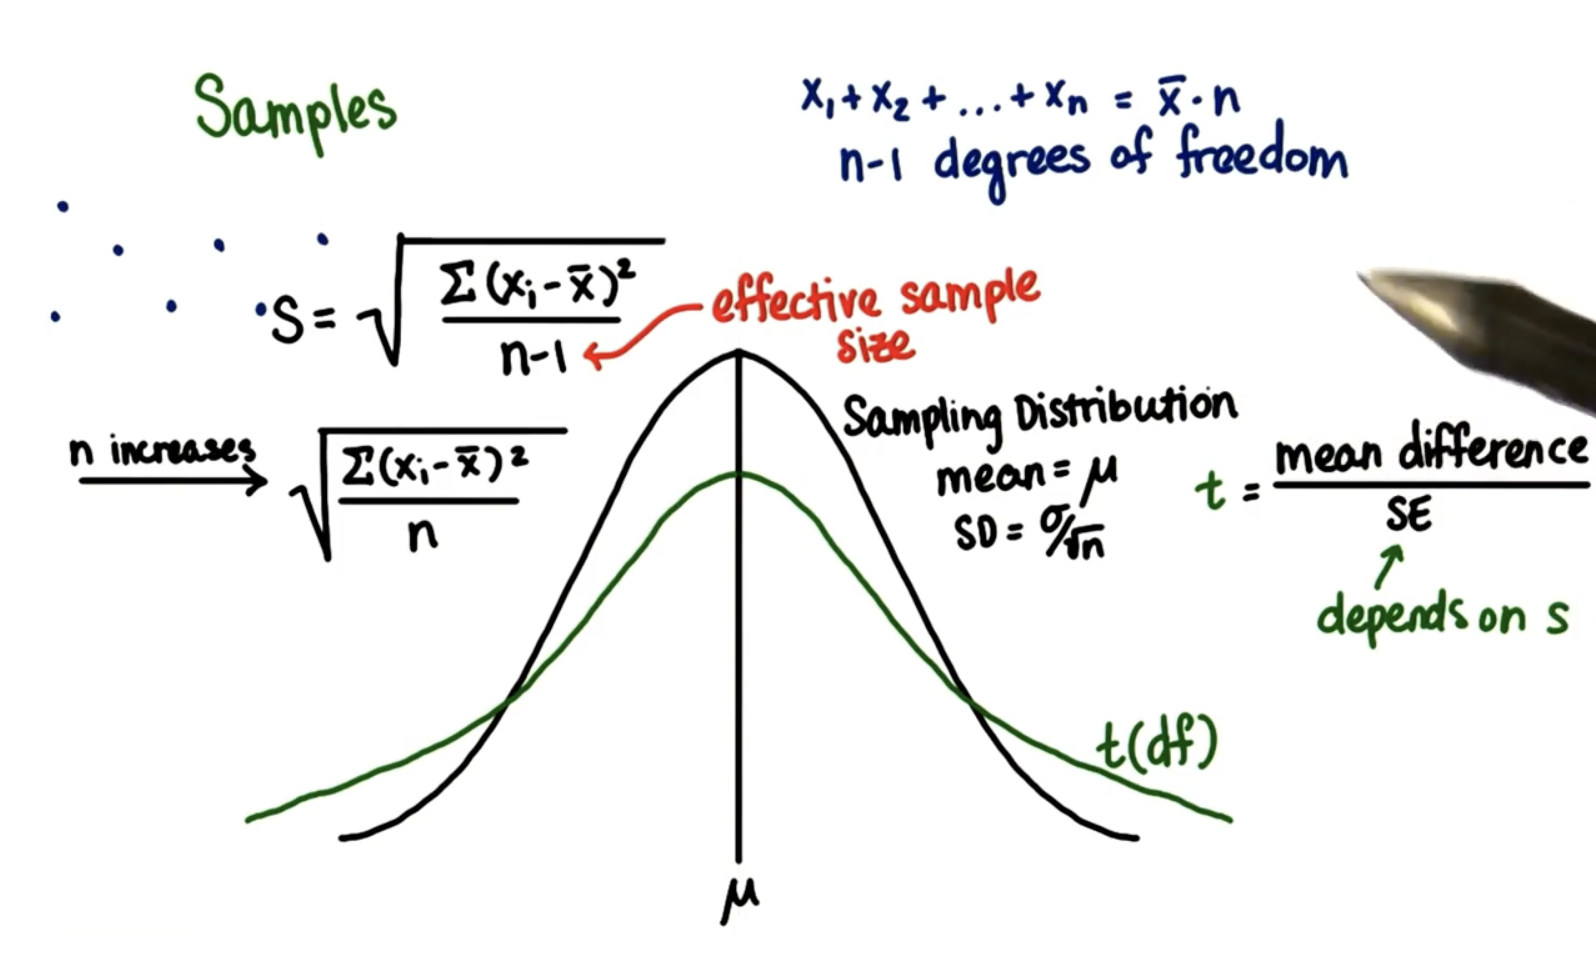 Samples
x₁ + x₂ + ... + xₙ = x̄ · n
n-1 degrees of freedom
S = √(Σ(xᵢ - x̄)² / n-1)
effective sample
size
n increases
√(Σ(xᵢ - x̄)² / n)
Sampling Distribution
mean = μ
SD = σ/√n
t = mean difference / SE
depends on s
t(df)
μ